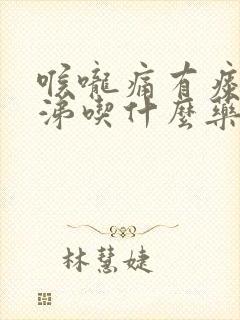 喉嚨痛有痰
涕喫什麼藥
林慧婕